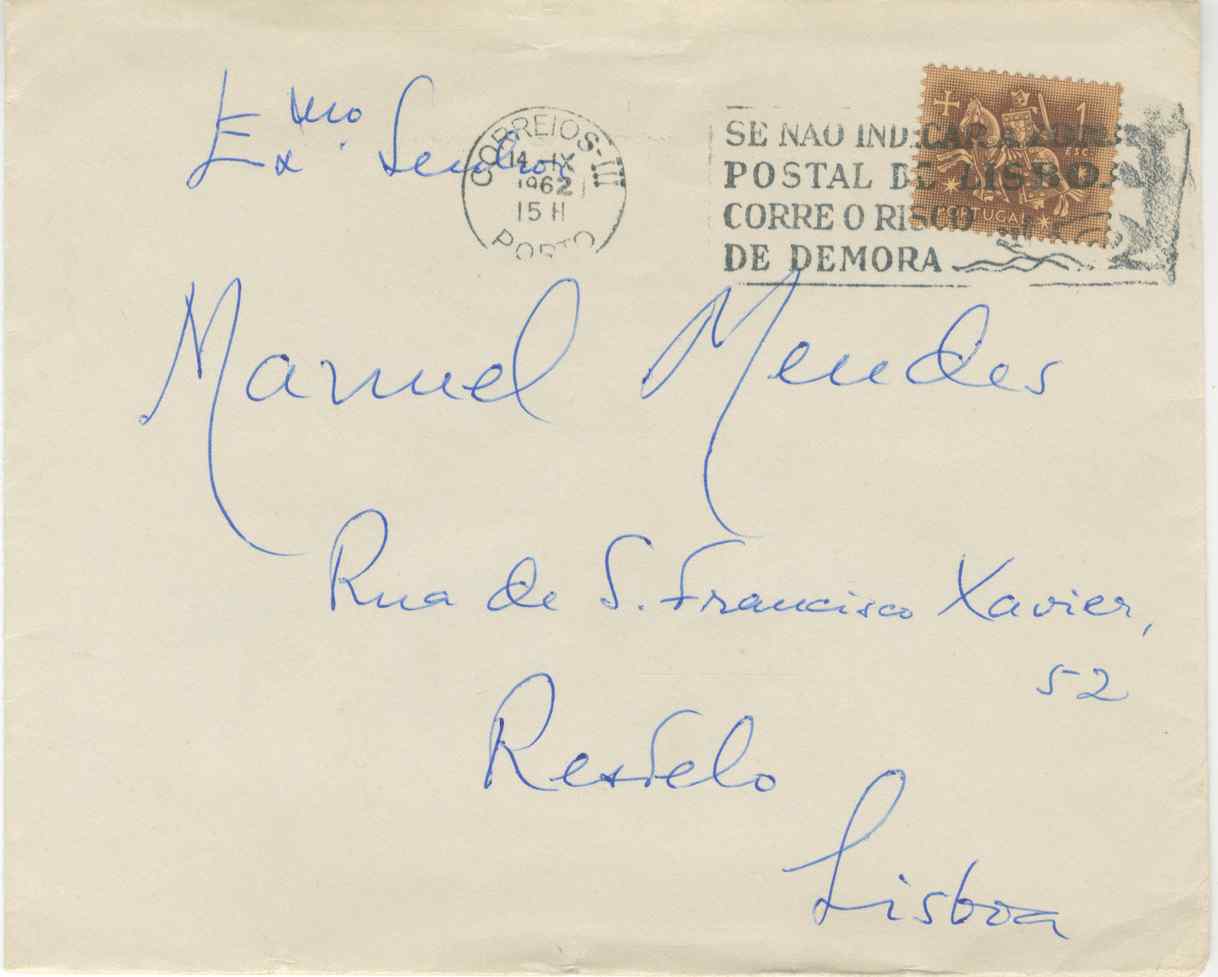 Exmo. Senhor
CORREIOS-III
14-IX
1962
15 H
PORTO
SE NÃO INDICAR A ZONA
POSTAL DE LISBOA
CORRE O RISCO
DE DEMORA
1
ESC.
PORTUGAL
Manuel Mendes
Rua de S. Francisco Xavier,
52
Restelo
Lisboa